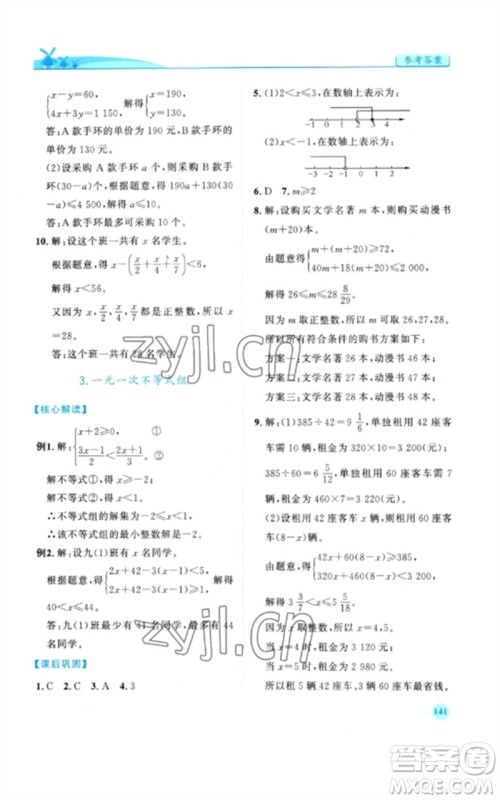 参考答案
{x-y=60, 4x+3y=1 150, 解得{x=190, y=130.
答:A 款手环的单价为 190 元,B 款手环的单价为 130 元.
(2)设采购 A 款手环 a 个,则采购 B 款手环(30-a)个,根据题意,得 190a+130(30-a)≤4 500,解得 a≤10.
答:A 款手环最多可采购 10 个.
10. 解:设这个班一共有 x 名学生.
根据题意,得 x-(x/2+x/4+x/7)<6,
解得 x<56.
又因为 x,x/2,x/4,x/7 都是正整数,所以 x=28.
答:这个班一共有 28 名学生.
3. 一元一次不等式组
【核心解读】
例1. 解:{x+2≥0,① (3x-1)/2<(2x+1)/3.②
解不等式①,得 x≥-2;
解不等式②,得 x<1.
∴不等式组的解集为-2≤x<1.
例2. 解:设九(1)班有 x 名同学.
根据题意,得{2x+42-3(x-1)<5, 2x+42-3(x-1)≥1. 解得
40<x≤44.
答:九(1)班最少有 41 名同学,最多有 44 名同学.
【课后巩固】
1. C 2. C 3. A 4. 3
5. (1)2<x≤3,在数轴上表示为:
-1 0 1 2 3 4
(2)x≤-1,在数轴上表示为:
-3 -2 -1 0 1 2
6. D 7. m≥2
8. 解:设购买文学名著 m 本,则购买动漫书(m+20)本.
由题意得{m+(m+20)≥72,
解得 26≤m≤28 8/29.
因为 m 取整数,所以 m 取 26,27,28.
所有符合条件的购书方案如下:
方案一:文学名著 26 本,动漫书 46 本;
方案二:文学名著 27 本,动漫书 47 本;
方案三:文学名著 28 本,动漫书 48 本.
9. 解:(1)385÷42≈9.2,单独租用 42 座客车需 10 辆,租金为 320×10=3 200(元);
385÷60=6 5/12,单独租用 60 座客车需 7 辆,租金为 460×7=3 220(元).
(2)设租用 42 座客车 x 辆,则租用 60 座客车(8-x)辆.
由题意得
解得 3 3/7≤x≤5 5/18.
因为 x 取整数,所以 x=4 或 5.
当 x=4 时,租金为 3 120 元;
当 x=5 时,租金为 2 980 元.
所以租 5 辆 42 座,3 辆 60 座客车最省钱.
141
zyjl.cn
zyjl.cn
答案圈
MXQE.COM